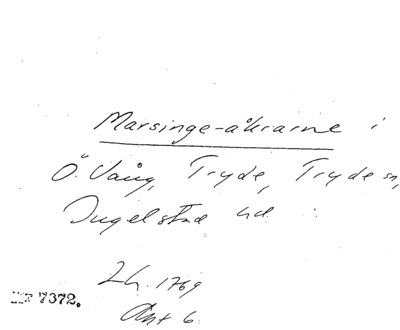 Marsinge-åkrarne i
Ö. Vång, Tryde, Tryde sn,
Ingelstad hd.
Lh. 1769
MF 7372.
Akt 6.